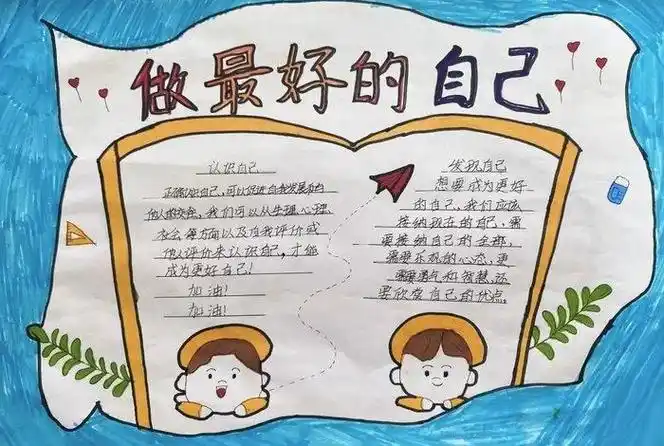 做最好的自己
认识自己
正确认识自己,可以促进自我发展和与
他人的交会,我们可以从生理、心理、
社会等方面以及自我评价或
他人评价来认识自己,才能
成为更好自己!
加油!
加油!
发现自己
想要成为更好
的自己,我们应该
接纳现在的自己,需
要接纳自己的全部,
需要乐观的心态,更
需要勇气和智慧,还
要欣赏自己的优点。